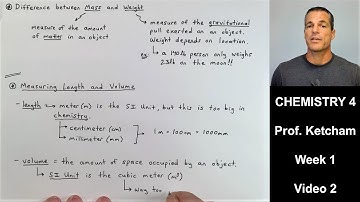 Difference between Mass and Weight
measure of the amount
of matter in an object
measure of the gravitational
pull exerted on an object.
Weight depends on location.
ex: a 140lb person only weighs
23lb on the moon!!
Measuring Length and Volume
- length → meter (m) is the SI Unit, but this is too big in
chemistry.
→ centimeter (cm)
→ millimeter (mm)
1m = 100cm = 1000mm
- volume = the amount of space occupied by an object.
→ SI Unit is the cubic meter (m³)
→ way too
CHEMISTRY 4
Prof. Ketcham
Week 1
Video 2